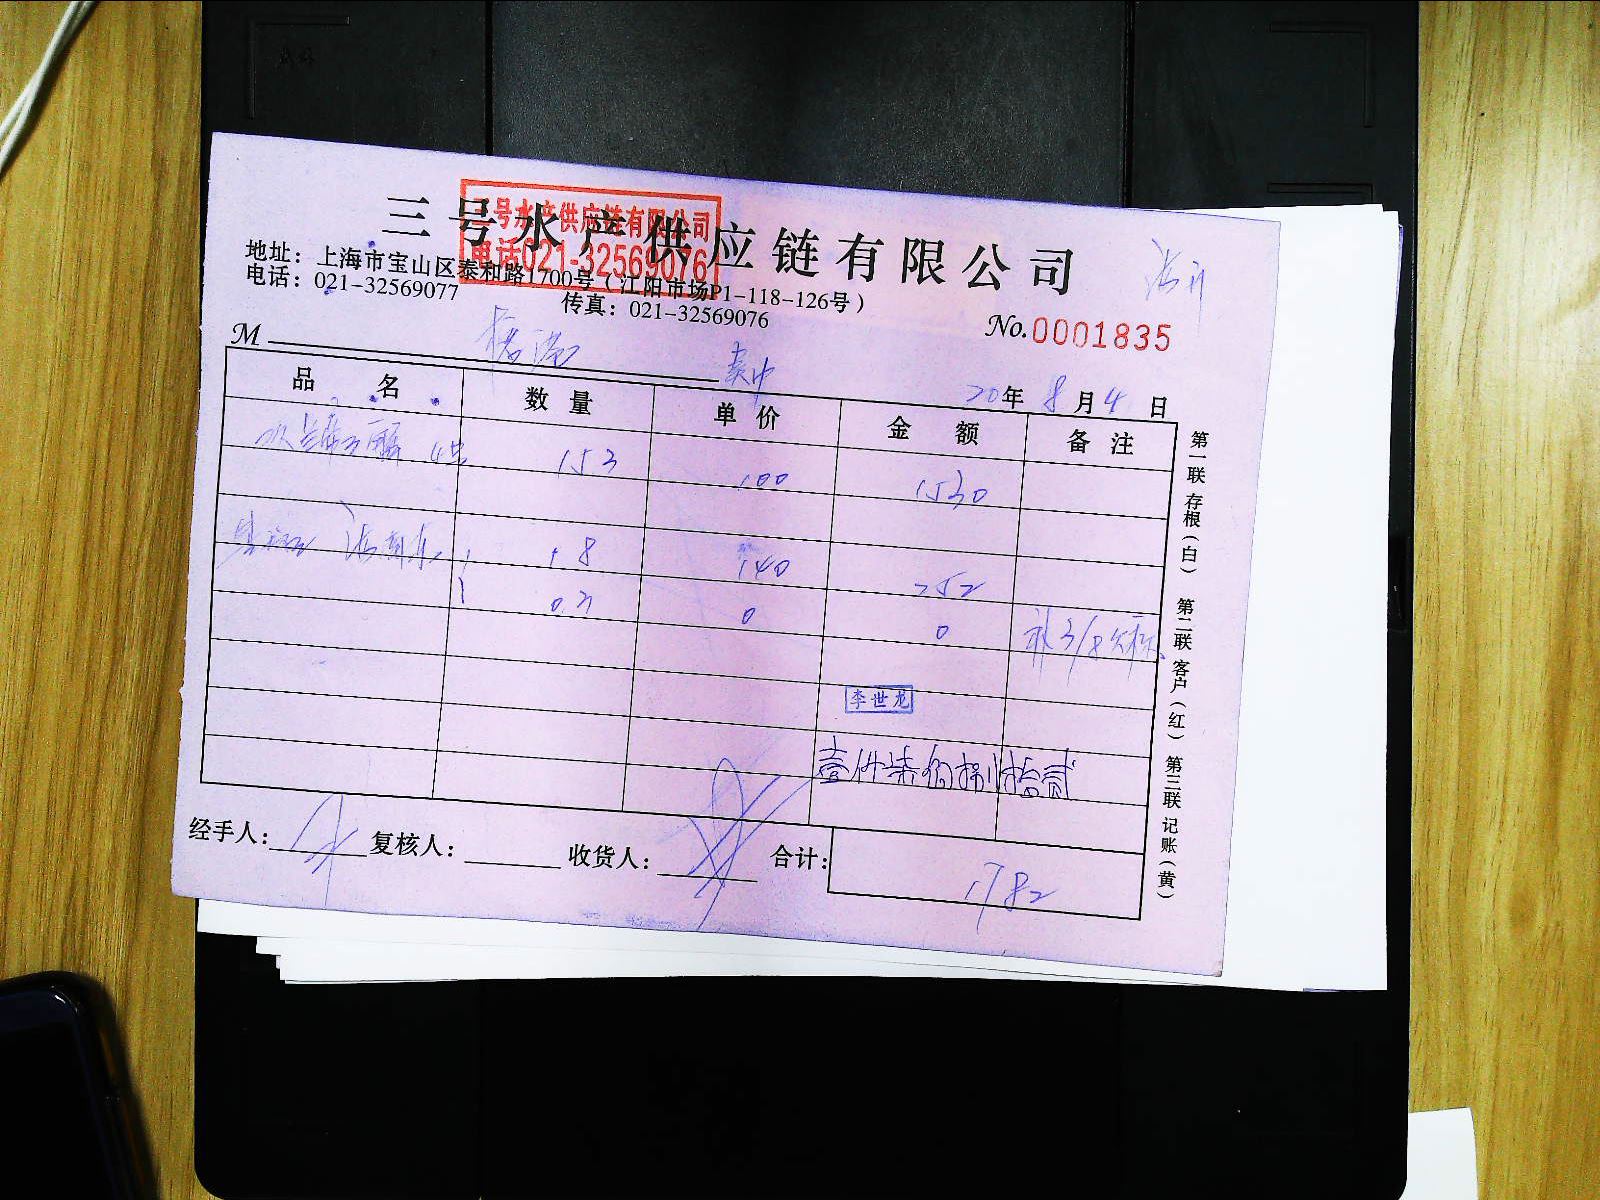 三号水产供应链有限公司
三号水产供应链有限公司
电话021-32569076
地址：上海市宝山区泰和路1700号（江阳市场P1-118-126号）
电话：021-32569077
传真：021-32569076
No.0001835
M
20年 8月 4日
品 名 数 量 单 价 金 额 备 注
153 100 1530
1.8 140 252
0 0
李世龙
壹仟柒佰捌拾贰
经手人： 复核人： 收货人： 合计： 1782
第一联 存根（白） 第二联 客户（红） 第三联 记账（黄）